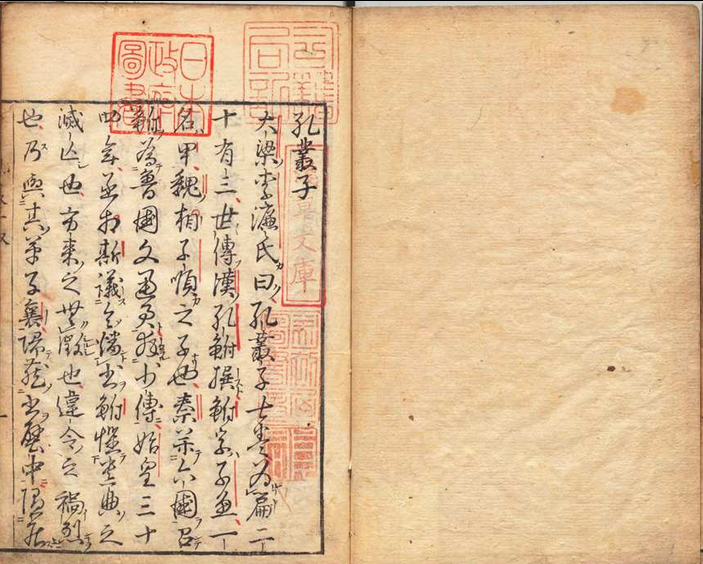 孔叢子
大梁李濂氏曰孔叢子七卷為篇二
十有三世傳漢孔鮒撰鮒字子魚一
名甲魏相子順之子也秦并六國召
鮒為魯國文通君拜少傅始皇三十
四年丞相斯議令燔書鮒懼遺典之
滅亡也方來之無徵也違令之禍烈
也乃與其弟子襄歸藏書壁中隱居
日本政府圖書
文庫